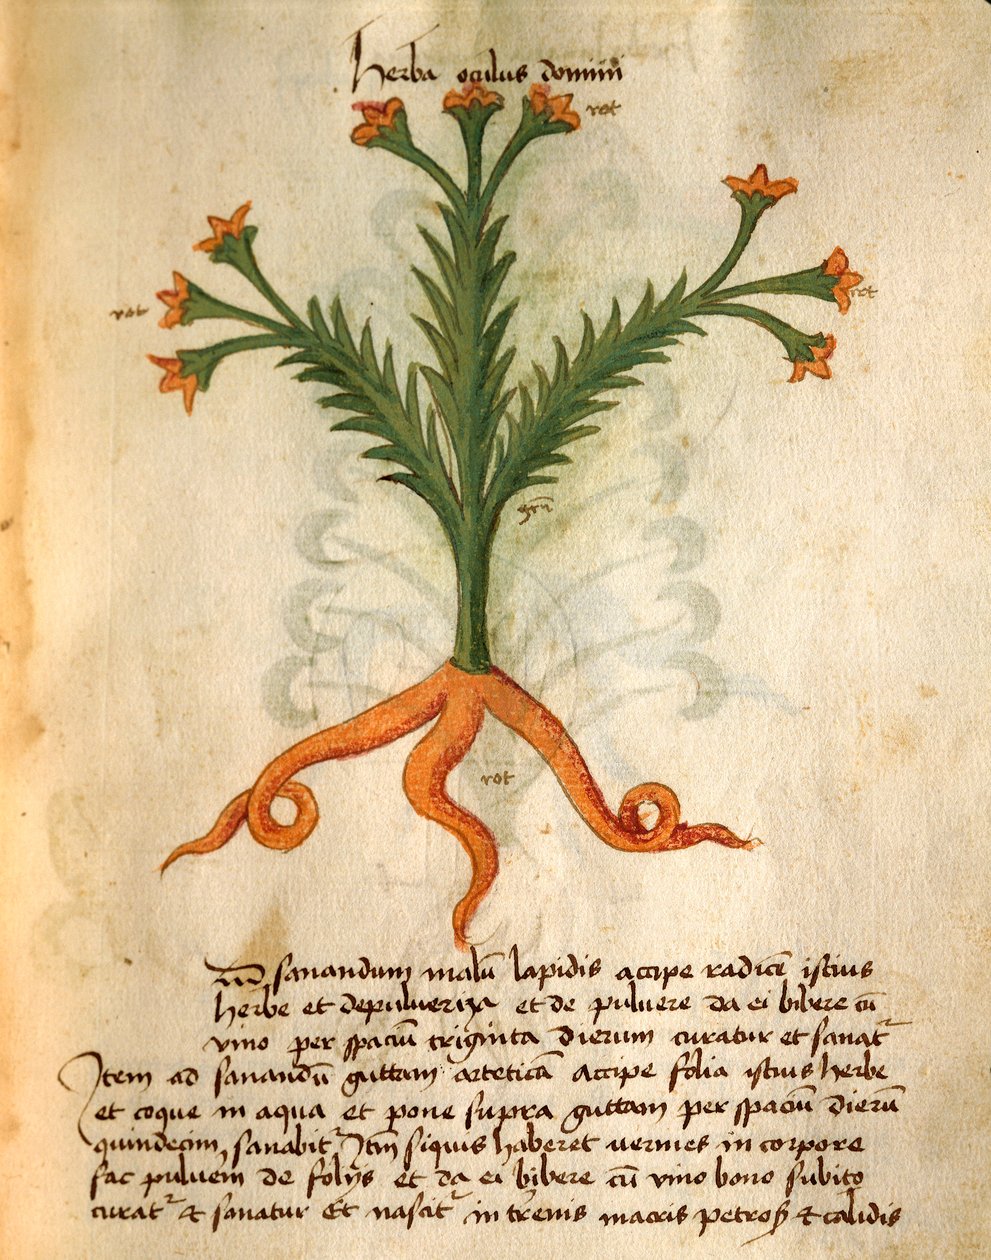 herba oculus domini
rot
rot
rot
grū
rot
Ad sanandum malū lapidis accipe radicē istius
herbe et depulueriza et de puluere da ei bibere cū
vino per spaciū triginta dierum curatur et sanatr
Item ad sanandū guttam arteticā accipe folia istius herbe
et coque in aqua et pone supra guttam per spaciū dierū
quindecim, sanabitr Itm siquis haberet uermes in corpore
fac puluem de folijs et da ei bibere cū vino bono subito
curatr & sanatur Et nascitr in trēnis macris petroꝝ & calidis